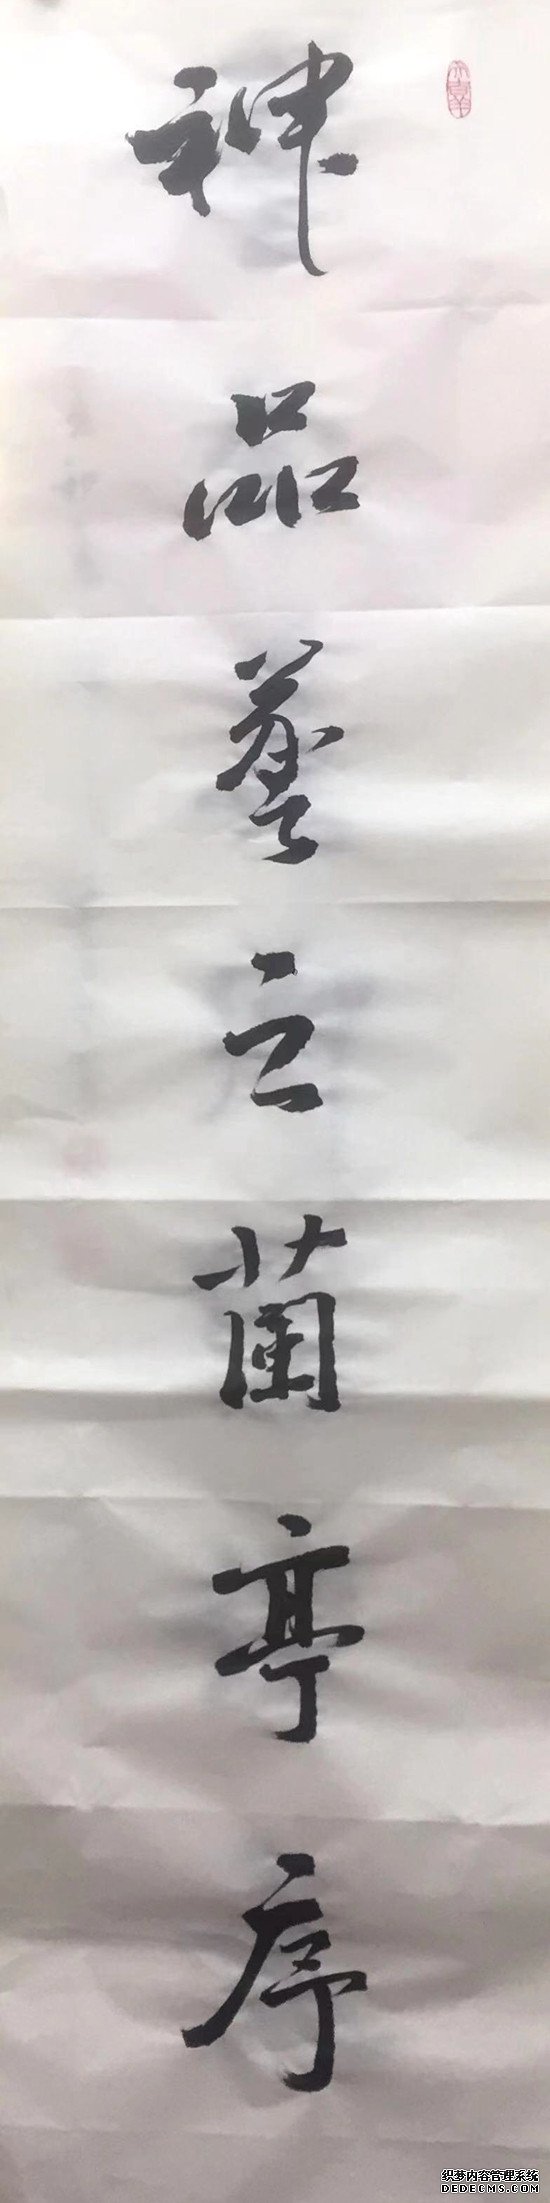 神品羲之蘭亭序
织梦内容管理系统
DEDECMS.COM